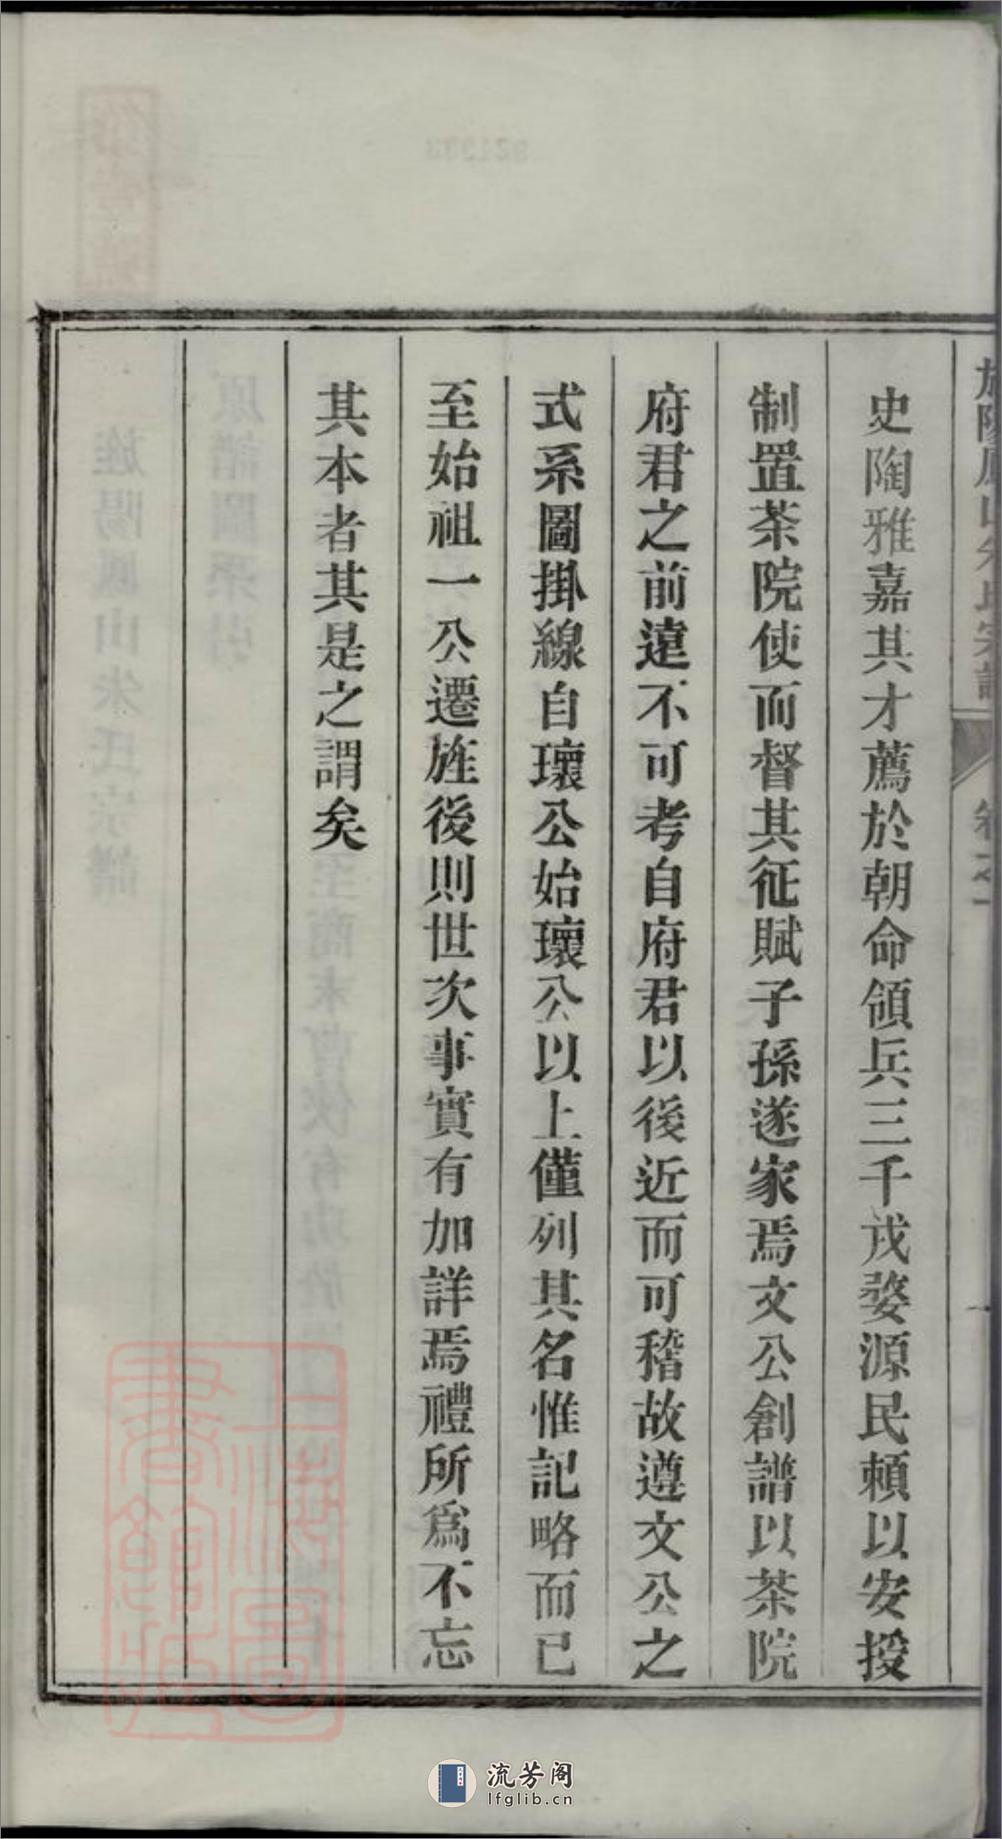 史陶雅嘉其才薦於朝命領兵三千戍婺源民賴以安授
制置茶院使而督其征賦子孫遂家焉文公創譜以茶院
府君之前遠不可考自府君以後近而可稽故遵文公之
式系圖掛線自瓌公始瓌公以上僅列其名惟記略而已
至始祖一公遷旌後則世次事實有加詳焉禮所為不忘
其本者其是之謂矣
上海圖
書館藏
流芳阁
lfglib.cn